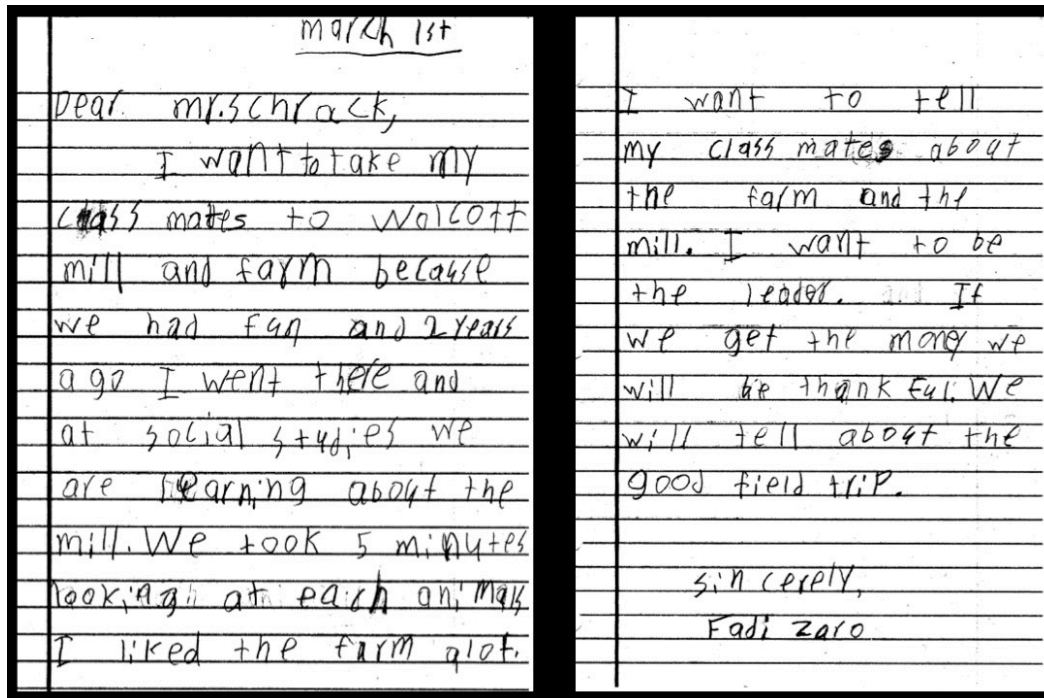 March 1st
Dear. mr.schrack,
I want to take my
class mates to Wolcott
mill and farm because
we had fun and 2 years
ago I went there and
at social studies we
are learning about the
mill. We took 5 minutes
looking at each animals
I liked the farm alot.
I want to tell
my class mates about
the farm and the
mill. I want to be
the leader. and If
we get the money we
will be thank Ful. We
will tell about the
good field trip.
sin cerely,
Fadi Zaro